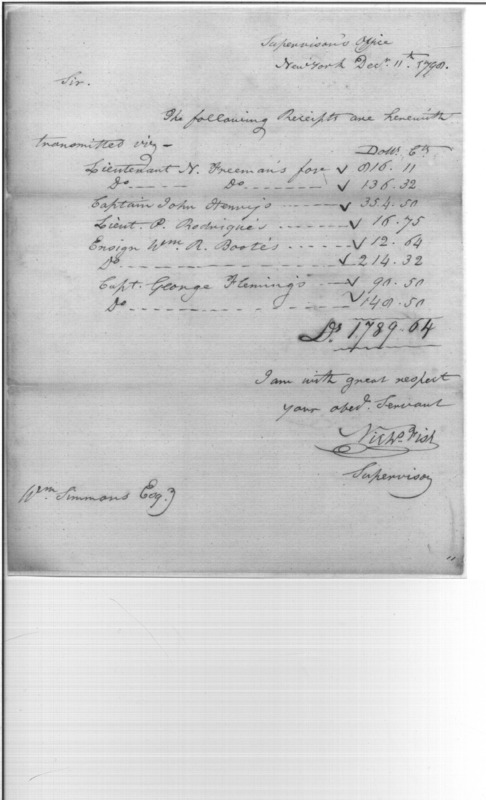 Supervisor's Office
New York Decr. 11th 1798.
Sir.
The following Receipts are herewith
transmitted viz –
Dolls. Cts
Lieutenant N. Freeman's for ✓ 816.11
Do. ------ Do. -------- ✓ 136.32
Captain John Henry's ------ ✓ 354.50
Lieut. P. Rodrigue's ------ ✓ 16.75
Ensign Wm. R. Boote's ------ ✓ 12.64
Do. ------------------- ✓ 214.32
Capt. George Fleming's --- ✓ 90.50
Do. ------------------- ✓ 148.50
Ds. 1789.64
I am with great respect
your obedt. Servant
Nichs. Fish
Supervisor
Wm Simmons Esq.